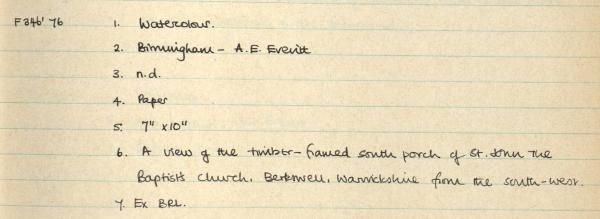 F346'76 1. Watercolour.
2. Birmingham - A.E. Everitt
3. n.d.
4. Paper
5. 7" x 10"
6. A view of the timber-framed south porch of St. John the
Baptist's Church, Berkswell, Warwickshire from the south-west.
7. Ex BRL.